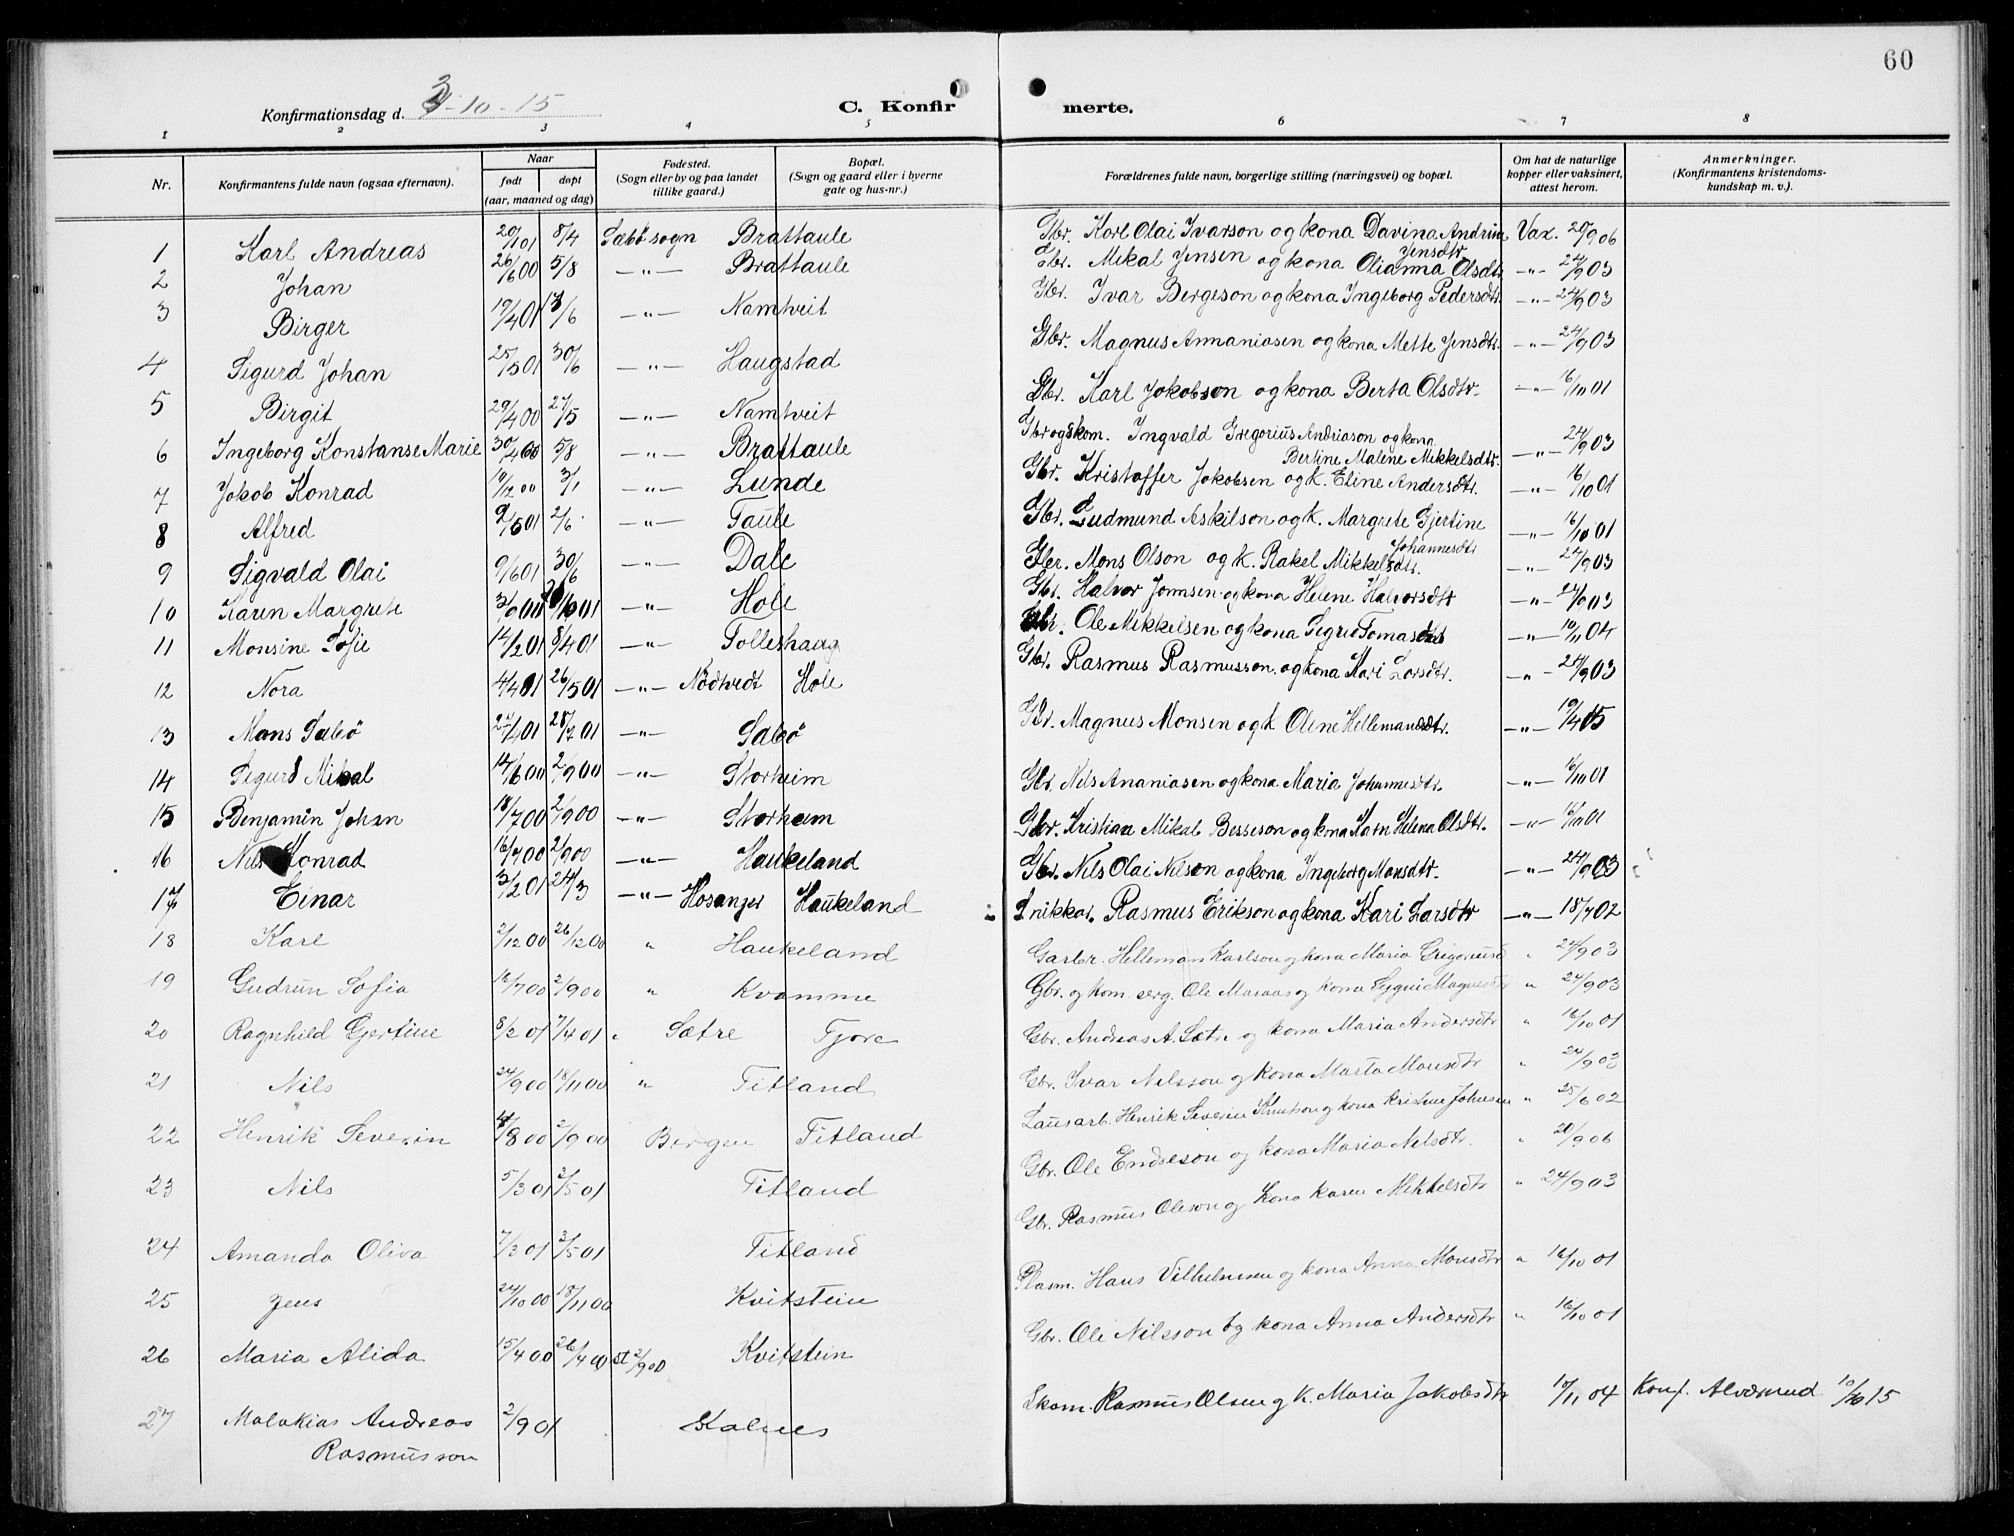 60
Konfirmationsdag d. 3-10-15
C. Konfir merte.
1 2 3 4 5 6 7 8
Nr. Konfirmantens fulde navn (ogsaa efternavn). Naar født døpt (aar, maaned og dag) Fødested. (Sogn eller by og paa landet tillike gaard.) Bopæl. (Sogn og gaard eller i byerne gate og hus-nr.) Forældrenes fulde navn, borgerlige stilling (næringsvei) og bopæl. Om hat de naturlige kopper eller vaksinert, attest herom. Anmerkninger. (Konfirmantens kristendoms-kundskap m. v.).
1 Karl Andreas 20/1 01 8/4 Sæbö sogn Brattaule Gbr. Karl Olai Ivarson og kona Davina Andrine Jensdtr Vax. 20/9 06
2 Johan 26/6 00 5/8 —"— Brattaule Gbr. Mikal Jensen og kona Olianna Olsdtr —"— 24/9 03
3 Birger 19/4 01 /6 —"— Namtveit Gbr. Ivar Bergeson og kona Ingeborg Pedersdtr. —"— 24/9 03
4 Sigurd Johan 25/5 01 30/6 —"— Haugstad Gbr. Magnus Annaniasen og kona Mette Jensdtr. —"— 24/9 03
5 Birgit 29/4 00 27/5 —"— Namtveit Gbr. Karl Jokobson og kona Berta Olsdtr. —"— 16/10 01
6 Ingeborg Konstanse Marie 30/4 00 5/8 —"— Brattaule Gbr og skom. Ingvald Gregorius Andriason og kona Bertine Malene Mikkelsdtr. —"— 24/9 03
7 Jokob Konrad 19/12 00 3/1 —"— Lunde Gbr. Kristoffer Jokobsen og k. Eline Andersdtr. —"— 16/10 01
8 Alfred 9/5 01 2/6 —"— Taule Gbr. Gudmund Askilson og k. Margrete Gjertine Johannesdtr —"— 16/10 01
9 Sigvald Olai 9/6 01 30/6 —"— Dale Gbr. Mons Olson og k. Rakel Mikkelsdtr. —"— 24/9 03
10 Karen Margrete 3/9 00 01 —"— Hole Gbr. Halvor Jonnsen og kona Helene Halvorsdtr —"— 24/9 03
11 Monsine Sofie 14/2 01 8/4 01 —"— Tolleshaug Gbr. Ole Mikkelsen og kona Sigrid Tomasdtr —"— 19/11 04
12 Nora 4/4 01 26/5 01 —"— Nödtvedt Hole Gbr. Rasmus Rasmusson og kona Kari Larsdtr. —"— 24/9 03
13 Mons Sæbö 27/4 01 28/7 01 —"— Sæbö Gbr. Magnus Monsen og k Oline Hellemansdtr. —"— 19/4 15
14 Sigurd Mikal 14/6 00 2/9 00 —"— Storheim Gbr. Nils Ananiasen og kona Maria Johannesdtr. —"— 16/10 01
15 Benjamin Johan 18/7 00 2/9 00 —"— Storheim Gbr. Kristian Mikal Besseson og kona Karn Helena Olsdtr. —"— 16/10 01
16 Nils Konrad 16/7 00 2/9 00 —"— Haukeland Gbr. Nils Olai Nilson og kona Ingeborg Monsdtr. —"— 24/9 03
17 Einar 3/2 01 24/3 —"— Hosanger Haukeland Snikkar. Rasmus Erikson og kona Kari Larsdtr —"— 18/7 02
18 Karl 2/12 00 26/12 00 " Haukeland Garbr. Helleman Karlson og kona Maria Grigoriusd " 24/9 03
19 Gudrun Sofia 16/7 00 2/9 00 " Kvamme Gbr. og kom. serg. Ole Maraas og kona " 24/9 03
20 Ragnhild Gjertine 8/2 01 7/4 01 " Sætre Tjore Gbr. Andreas A. Sætre og kona Maria Andersdtr " 16/10 01
21 Nils 24/9 00 18/11 00 " Titland Gbr. Ivar Nilsson og kona Marta Monsdtr " 24/9 03
22 Henrik Severin 4/8 00 2/9 00 Bergen Titland Lausarb. Henrik Severin Knutson og kona Kristine Johnsen " 25/6 02
23 Nils 5/3 01 3/5 01 Titland Gbr. Ole Endreson og kona Maria Nelsdtr. " 20/9 06
24 Amanda Oliva 7/3 01 3/5 01 Titland Gbr. Rasmus Oleson og kona Karen Mikkelsdtr " 24/9 03
25 Jens 24/10 00 18/11 00 Kvitstein Plasm. Hans Vilhelmsen og kona Anna Monsdtr " 16/10 01
26 Maria Alida 15/4 00 26/4 00 st 2/9 00 Kvitstein Gbr. Ole Nilsson og kona Anna Andersdtr " 16/10 01
27 Malakias Andreas 2/9 01 Kalnes Skom. Rasmus Olsen og K. Maria Jakobsdtr 19/11 04 Konf. Alversund 10/10 15
Rasmusson